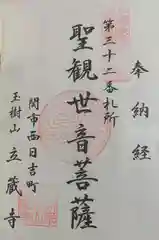 奉納経
第三十二番札所
聖観世音菩薩
関市西日吉町
玉樹山
立蔵寺